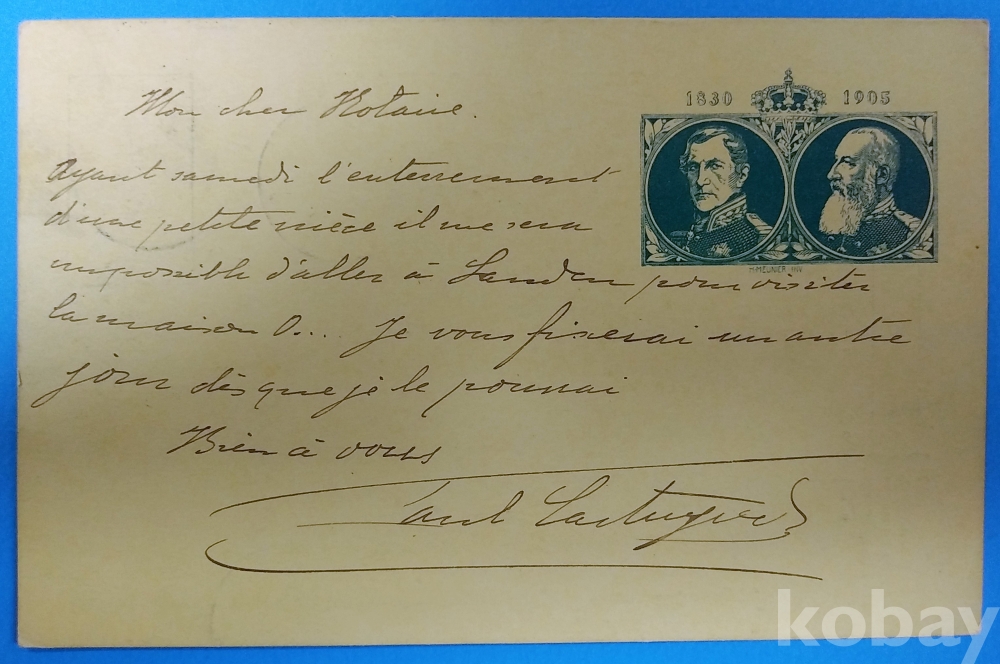 1830 1905
H. MEUNIER INV
Mon cher Notaire.
Ayant samedi l'enterrement
d'une petite nièce il me sera
impossible d'aller à Landen pour visiter
la maison O... Je vous fixerai un autre
jour dès que je le pourrai
Bien à vous
Paul
kobay